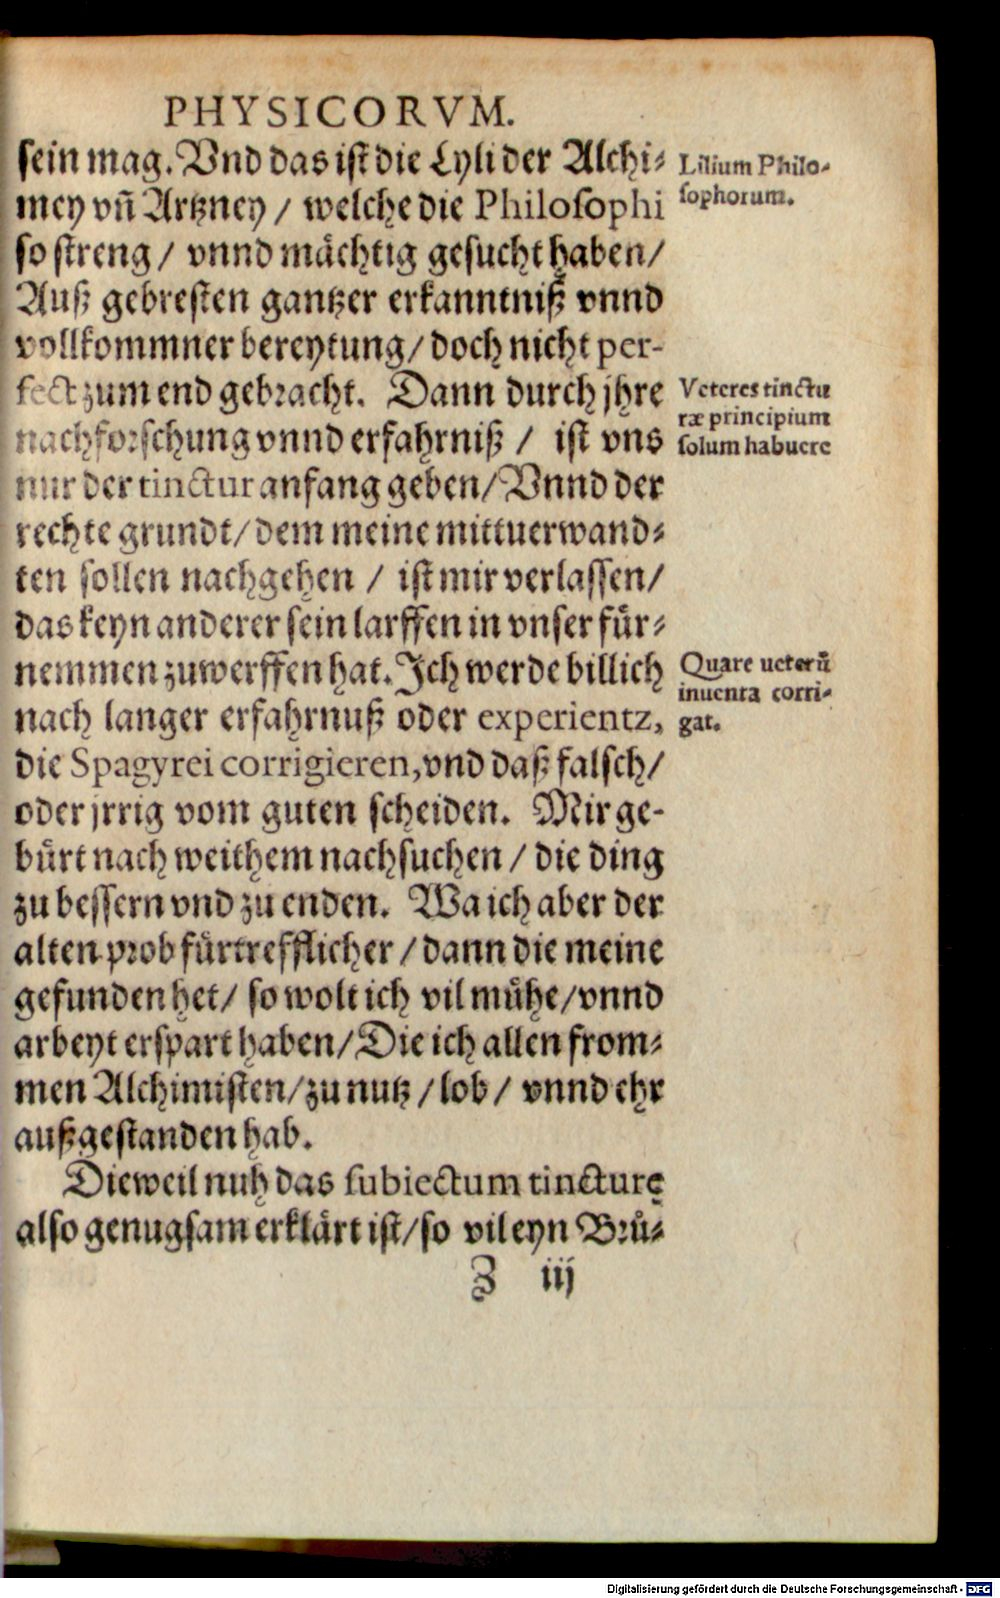 PHYSICORVM.
sein mag. Vnd das ist die Lyli der Alchi⸗
mey vñ Artzney / welche die Philosophi
so streng / vnnd mächtig gesucht haben/
Auß gebresten gantzer erkanntniß vnnd
vollkommner bereytung/ doch nicht per-
fect zum end gebracht. Dann durch jhre
nachforschung vnnd erfahrniß / ist vns
nur der tinctur anfang geben/ Vnnd der
rechte grundt/ dem meine mittuerwand⸗
ten sollen nachgehen / ist mir verlassen/
das keyn anderer sein larffen in vnser für⸗
nemmen zuwerffen hat. Ich werde billich
nach langer erfahrnuß oder experientz,
die Spagyrei corrigieren, vnd daß falsch/
oder jrrig vom guten scheiden. Mir ge-
bürt nach weithem nachsuchen / die ding
zu bessern vnd zu enden. Wa ich aber der
alten prob fürtrefflicher / dann die meine
gefunden het/ so wolt ich vil mühe/ vnnd
arbeyt erspart haben/ Die ich allen from⸗
men Alchimisten/ zu nutz / lob / vnnd ehr
außgestanden hab.
Dieweil nuh das subiectum tincturę
also genugsam erklärt ist/ so vil eyn Brů⸗
Z iij
Lilium Philo-
sophorum.
Veteres tinctu
ræ principium
solum habuere
Quare ueterũ
inuenta corri-
gat.
Digitalisierung gefördert durch die Deutsche Forschungsgemeinschaft - DFG